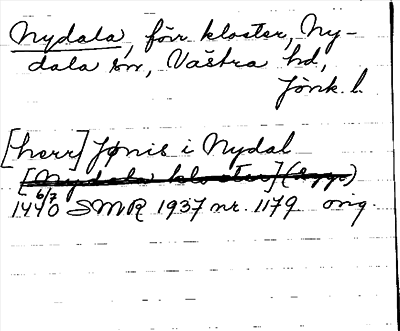 Nydala, förr kloster, Ny-
dala sn, Västra hd,
Jönk. l.
[herr] Jønis i Nydal
[Nydala kloster] (Sygn)
1440 6/7 SMR 1937 nr. 1179 orig.